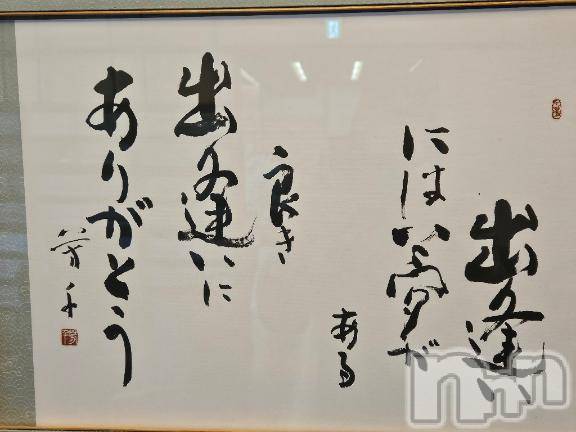 出逢い
には夢が
ある
良き
出逢いに
ありがとう